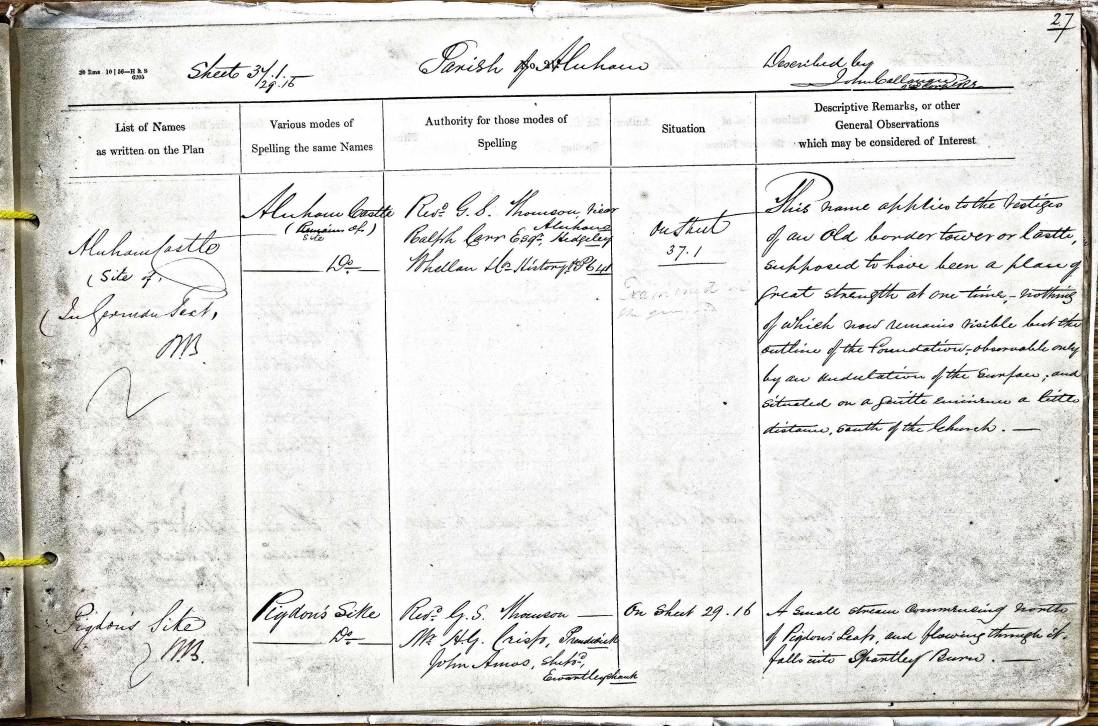 27
1
20 2ms 10 | 56—H & S
6205
Sheet 37.1.
29.16
Parish of Alnham
Described by
John Callanan
List of Names
as written on the Plan
Various modes of
Spelling the same Names
Authority for those modes of
Spelling
Situation
Descriptive Remarks, or other
General Observations
which may be considered of Interest
Alnham Castle
(Site of)
(In German Text,
Alnham Castle
(Remains of)
Site
Do
Revd. G. S. Thomson, Vicar
Alnham
Ralph Carr Esqr. Hedgeley
Whellan &Co History P. 641
On Sheet
37.1
Examined on
the ground
This name applies to the Vestiges
of an Old border tower or Castle,
supposed to have been a place of
great strength at one time, - nothing
of which now remains visible but the
outline of the Foundation, observable only
by an undulation of the surface; and
situated on a gentle eminence a little
distance, south of the Church. —
Pigdon's Sike
Pigdon's Sike
Do
Revd. G. S. Thomson —
Mr. H.G. Crisp, Prendwick
John Amos, Shepd.,
Ewartleyshank
On Sheet 29.16
A small stream commencing north
of Pigdon's Leap, and flowing through it.
falls into Spartley Burn. —